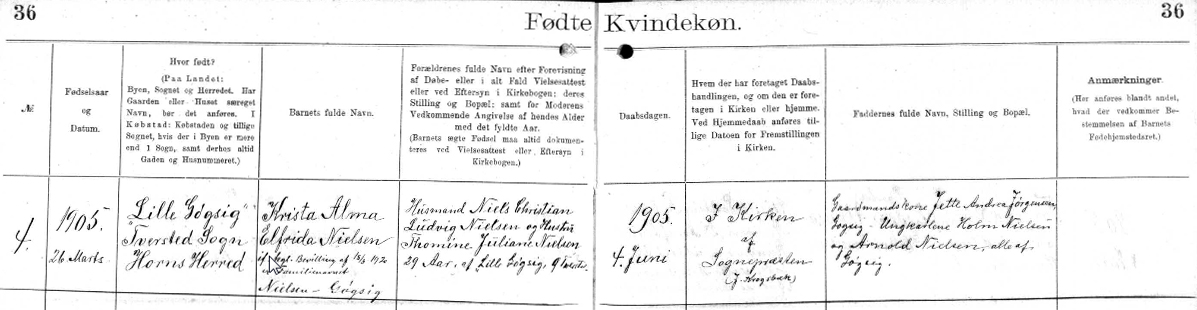 36
36
Fødte Kvindekøn.
№
Fødselsaar
og
Datum.
Hvor født?
(Paa Landet:
Byen, Sognet og Herredet. Har
Gaarden eller Huset særeget
Navn, bør det anføres. I
Købstad: Købstaden og tillige
Sognet, hvis der i Byen er mere
end 1 Sogn, samt derhos altid
Gaden og Husnummeret.)
Barnets fulde Navn.
Forældrenes fulde Navn efter Forevisning
af Døbe- eller i alt Fald Vielsesattest
eller ved Eftersyn i Kirkebogen; deres
Stilling og Bopæl; samt for Moderens
Vedkommende Angivelse af hendes Alder
med det fyldte Aar.
(Barnets ægte Fødsel maa altid dokumen-
teres ved Vielsesattest eller Eftersyn i
Kirkebogen.)
Daabsdagen.
Hvem der har foretaget Daabs-
handlingen, og om den er fore-
tagen i Kirken eller hjemme.
Ved Hjemmedaab anføres til-
lige Datoen for Fremstillingen
i Kirken.
Faddernes fulde Navn, Stilling og Bopæl.
Anmærkninger.
(Her anføres blandt andet,
hvad der vedkommer Be-
stemmelsen af Barnets
Fødehjemstedsret.)
4.
1905.
26 Marts
"Lille Gøgsig"
Tversted Sogn
Horns Herred
Krista Alma
Elfrida Nielsen
Bevilling af
Familienavnet
Nielsen-Gøgsig
Husmand Niels Christian
Ludvig Nielsen og Hustru
Thomine Juliane Nielsen
29 Aar, af Lille Gøgsig,
1905.
4. Juni
I Kirken
af
Sognepræsten
Gaardmandskone Jette Andrea Jörgensen,
Gøgsig - Ungkarlene Holm Nielsen
og Arnold Nielsen, alle af
Gøgsig.